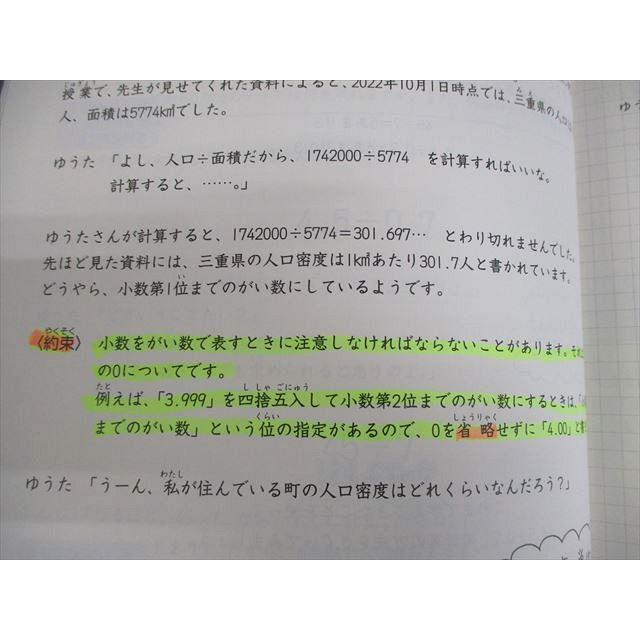 授業で、先生が見せてくれた資料によると、2022年10月1日時点では、三重県の人口は
人、面積は5774km²でした。
ゆうた 「よし、人口÷面積だから、1742000÷5774 を計算すればいいな。
計算すると、……。」
ゆうたさんが計算すると、1742000÷5774=301.697… とわり切れませんでした。
先ほど見た資料には、三重県の人口密度は1km²あたり301.7人と書かれています。
どうやら、小数第1位までのがい数にしているようです。
〈約束〉 小数をがい数で表すときに注意しなければならないことがあります。それ
の0についてです。
例えば、「3.999」を四捨五入して小数第2位までのがい数にするときは、「
までのがい数」という位の指定があるので、0を省略せずに「4.00」と
ゆうた 「うーん、私が住んでいる町の人口密度はどれくらいなんだろう？」
ゆう